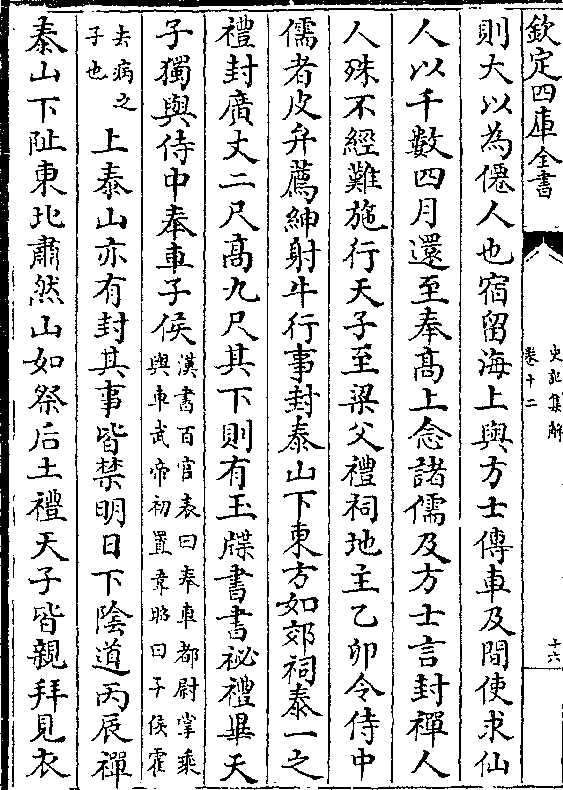 欽定四庫全書
史記集解
卷十二
十六
則大以為僊人也宿留海上與方士傳車及間使求仙
人以千數四月還至奉高上念諸儒及方士言封禪人
人殊不經難施行天子至梁父禮祠地主乙卯令侍中
儒者皮弁薦紳射牛行事封泰山下東方如郊祠泰一之
禮封廣丈二尺高九尺其下則有玉牒書書祕禮畢天
子獨與侍中奉車子侯
漢書百官表曰奉車都尉掌乘
輿車武帝初置韋昭曰子侯霍
去病之
子也
上泰山亦有封其事皆禁明日下陰道丙辰禪
泰山下阯東北肅然山如祭后土禮天子皆親拜見衣